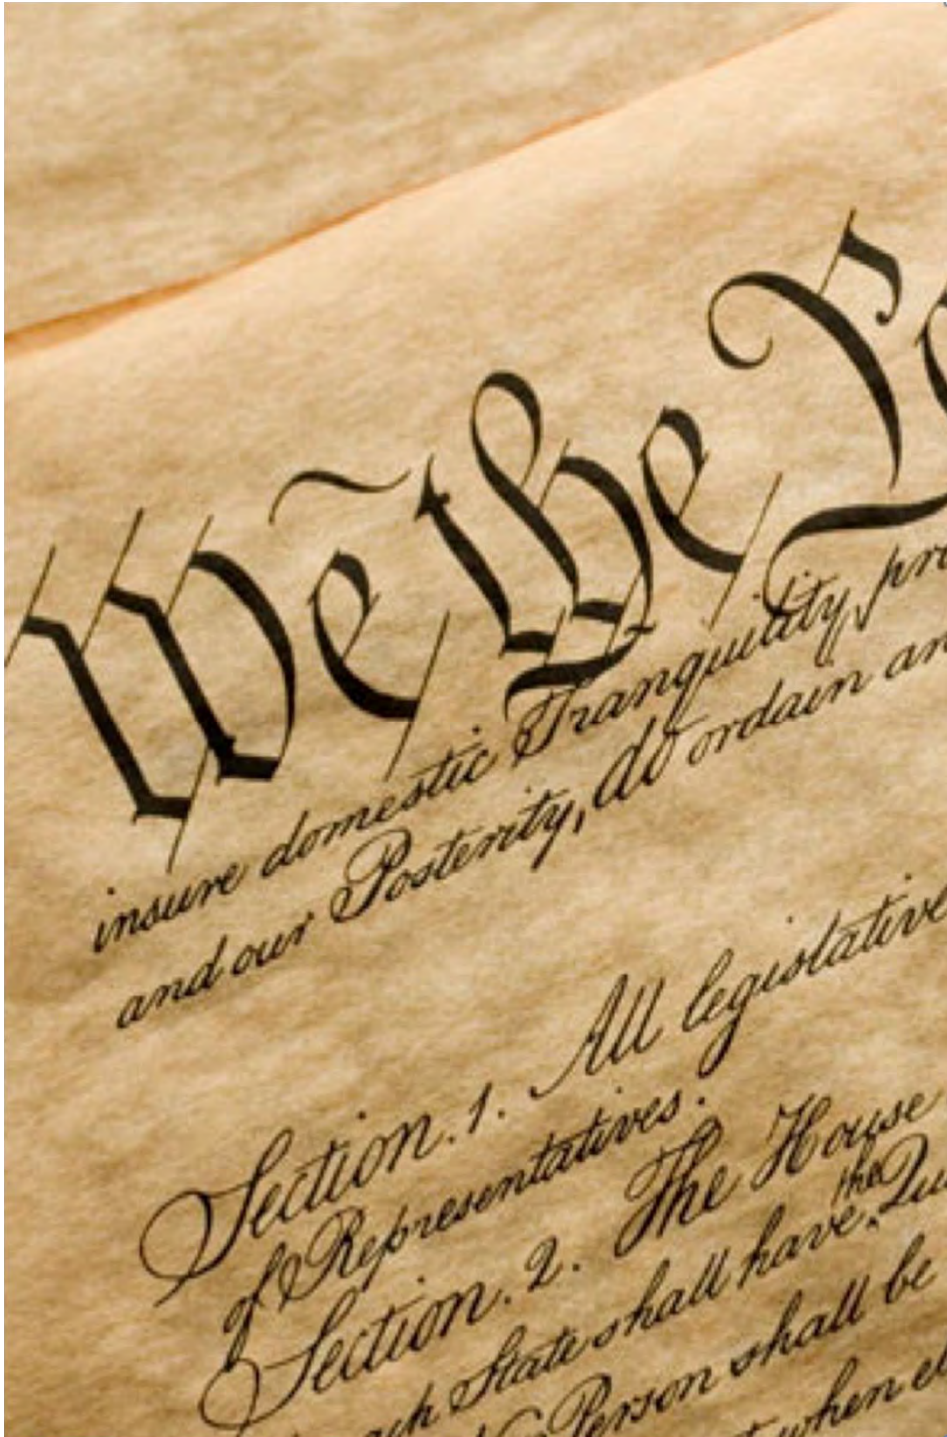 We the Pe
insure domestic Tranquility, pro
and our Posterity, do ordain an
Section. 1. All legislative
of Representatives.
Section. 2. The House
the
ach State shall have Qu
Person shall be
when e